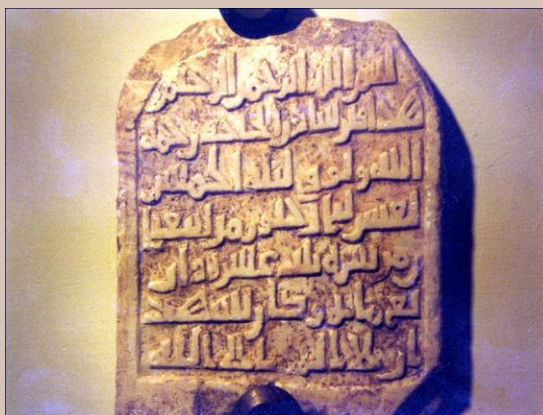 بسم الله الرحمن الرحيم
قبر رحمه
الله توفي ليلة الخميس
لعشر ليال خلون من شعبا
ن سنة عشرة وار
بع مائة وكان يشهد
ان لا اله الا الله